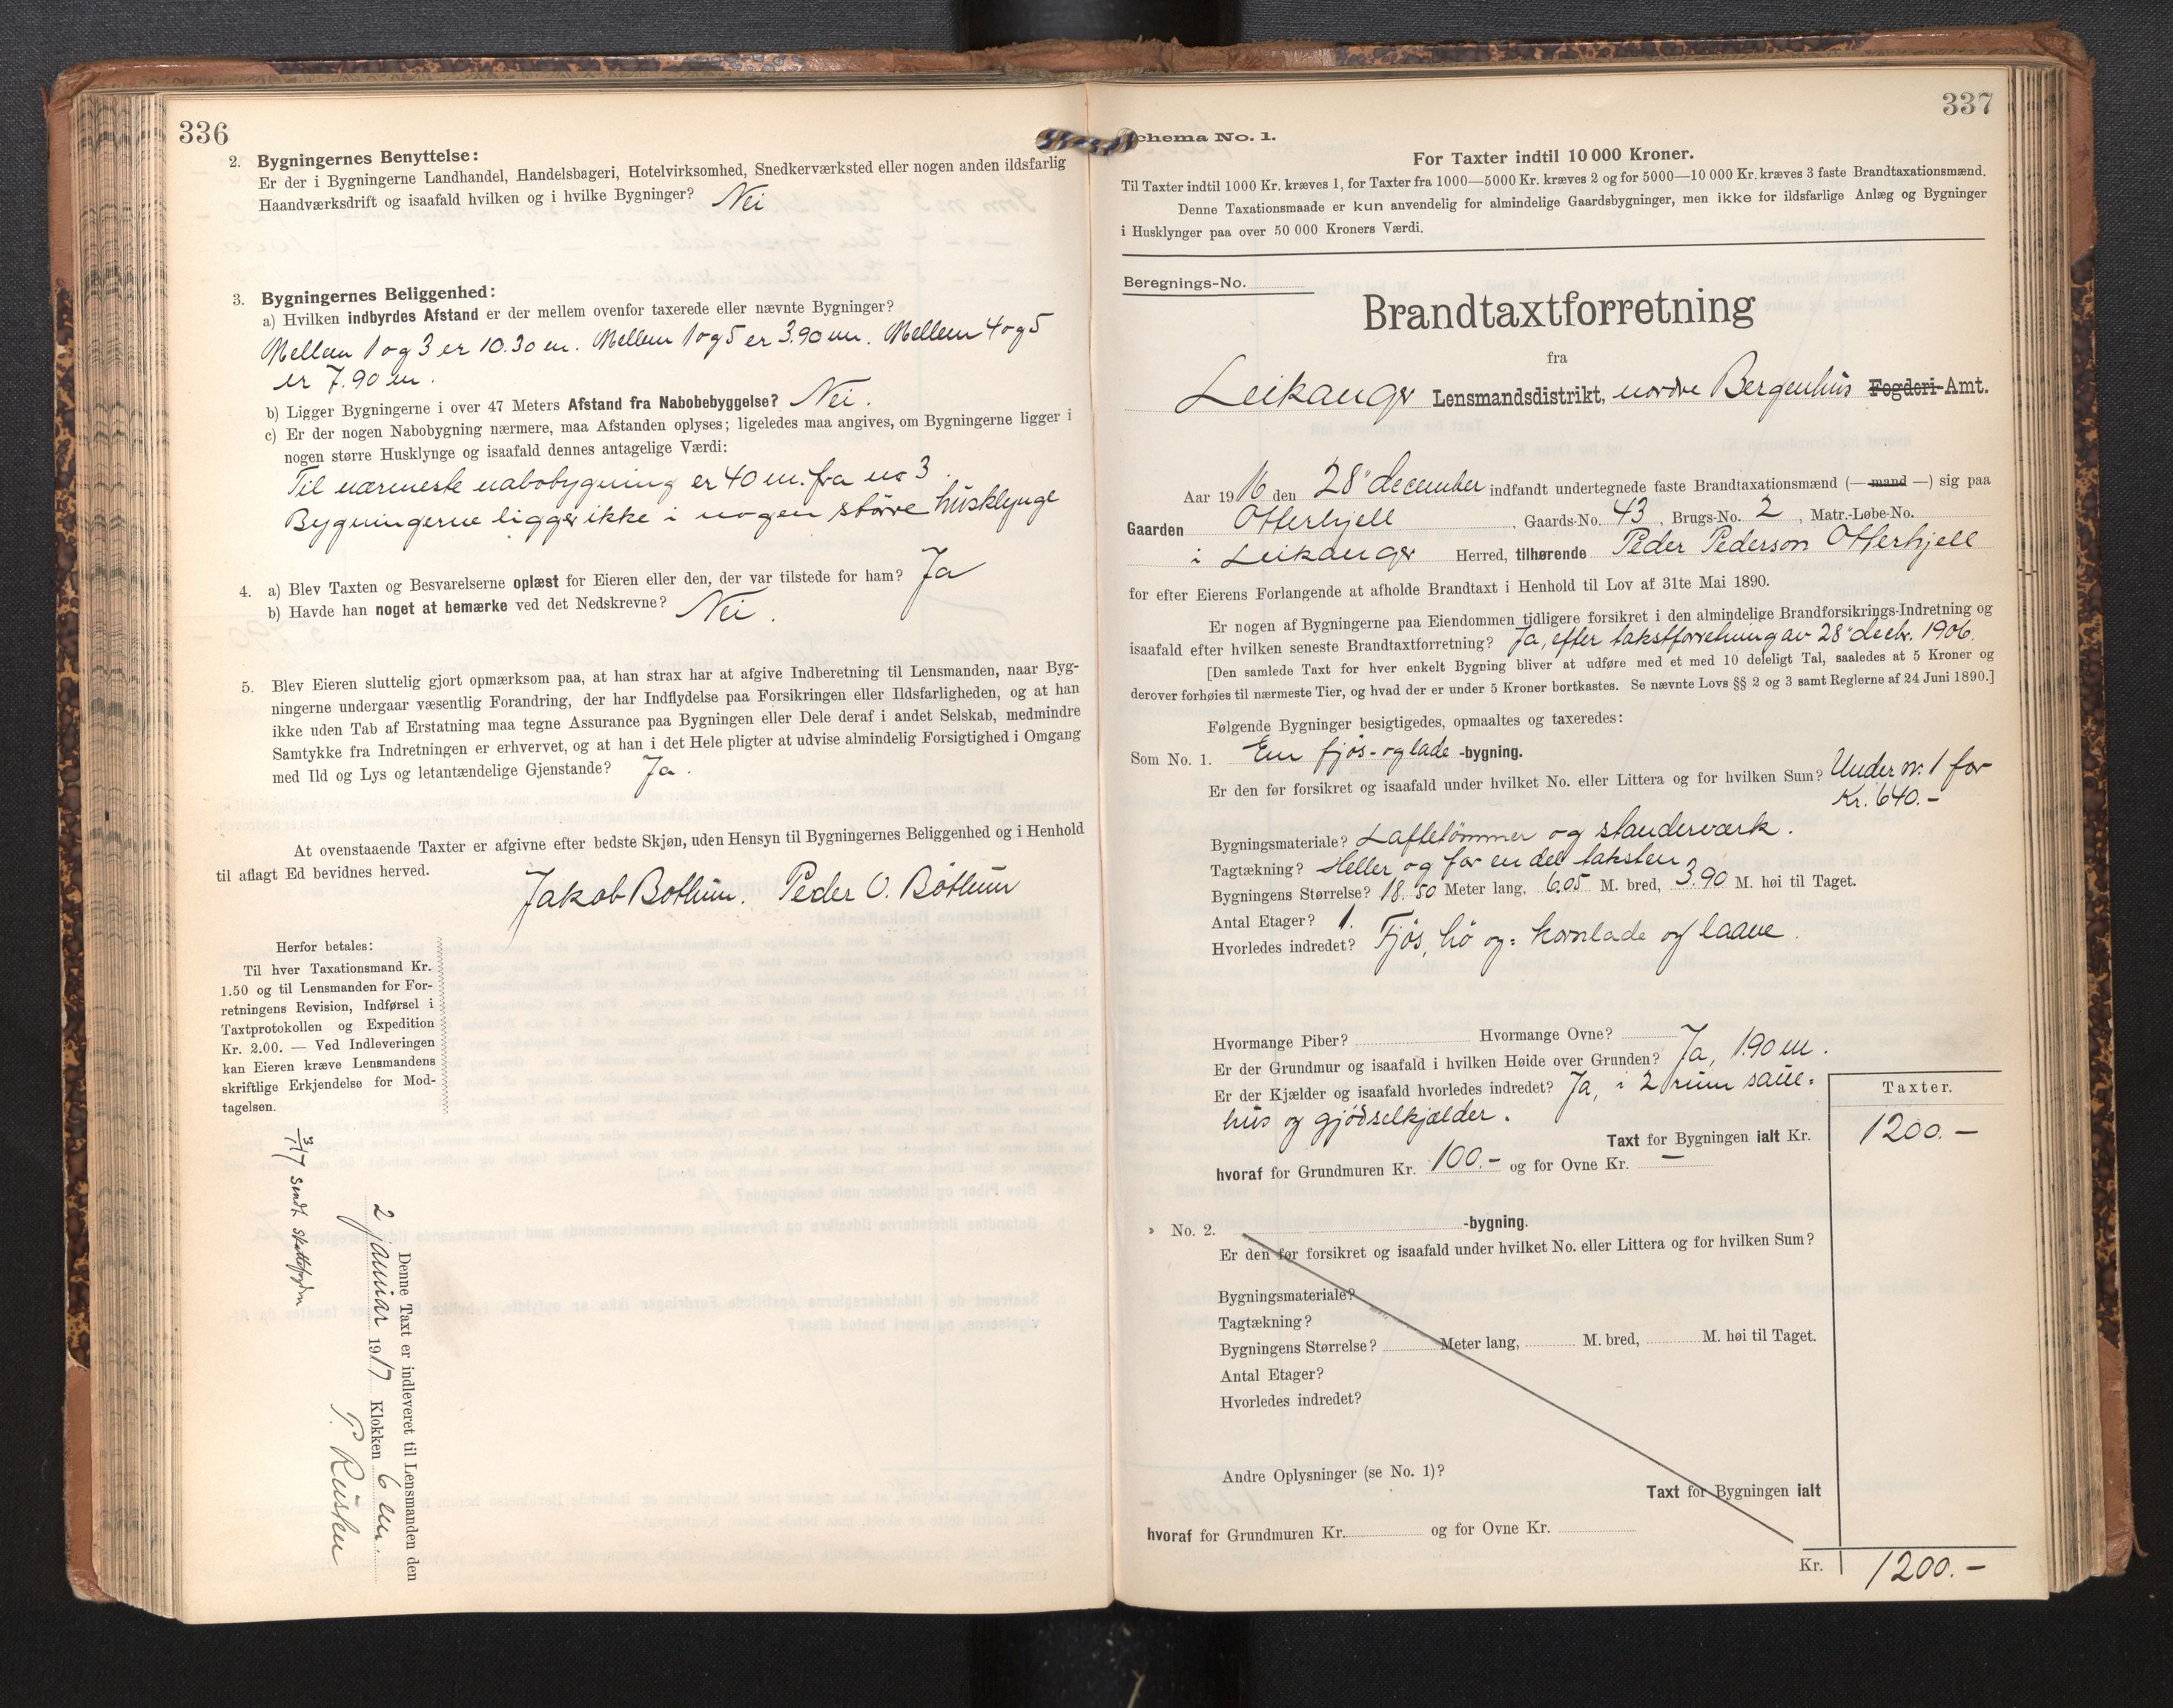 336
2. Bygningernes Benyttelse:
Er der i Bygningerne Landhandel, Handelsbageri, Hotelvirksomhed, Snedkerværksted eller nogen anden ildsfarlig
Haandværksdrift og isaafald hvilken og i hvilke Bygninger? Nei
3. Bygningernes Beliggenhed:
a) Hvilken indbyrdes Afstand er der mellem ovenfor taxerede eller nævnte Bygninger?
Mellem 1 og 3 er 10.30 m. Mellem 1 og 5 er 3.90 m. Mellem 4 og 5
er 7.90 m.
b) Ligger Bygningerne i over 47 Meters Afstand fra Nabobebyggelse? Nei.
c) Er der nogen Nabobygning nærmere, maa Afstanden oplyses; ligeledes maa angives, om Bygningerne ligger i
nogen større Husklynge og isaafald dennes antagelige Værdi:
Til nærmeste nabobygning er 40 m. fra no 3.
Bygningerne ligger ikke i nogen større husklynge
4. a) Blev Taxten og Besvarelserne oplæst for Eieren eller den, der var tilstede for ham? Ja
b) Havde han noget at bemærke ved det Nedskrevne? Nei.
5. Blev Eieren sluttelig gjort opmærksom paa, at han strax har at afgive Indberetning til Lensmanden, naar Byg-
ningerne undergaar væsentlig Forandring, der har Indflydelse paa Forsikringen eller Ildsfarligheden, og at han
ikke uden Tab af Erstatning maa tegne Assurance paa Bygningen eller Dele deraf i andet Selskab, medmindre
Samtykke fra Indretningen er erhvervet, og at han i det Hele pligter at udvise almindelig Forsigtighed i Omgang
med Ild og Lys og letantændelige Gjenstande? Ja.
At ovenstaaende Taxter er afgivne efter bedste Skjøn, uden Hensyn til Bygningernes Beliggenhed og i Henhold
til aflagt Ed bevidnes herved.
Jakob Bothun. Peder O. Bothun
Herfor betales:
Til hver Taxationsmand Kr.
1.50 og til Lensmanden for For-
retningens Revision, Indførsel i
Taxtprotokollen og Expedition
Kr. 2.00. — Ved Indleveringen
kan Eieren kræve Lensmandens
skriftlige Erkjendelse for Mod-
tagelsen.
Denne Taxt er indleveret til Lensmanden den
2 januar 1917 Klokken 6 em.
P. Rusten
3/1 17 sendt
337
Schema No. 1.
For Taxter indtil 10 000 Kroner.
Til Taxter indtil 1000 Kr. kræves 1, for Taxter fra 1000—5000 Kr. kræves 2 og for 5000—10 000 Kr. kræves 3 faste Brandtaxationsmænd.
Denne Taxationsmaade er kun anvendelig for almindelige Gaardsbygninger, men ikke for ildsfarlige Anlæg og Bygninger
i Husklynger paa over 50 000 Kroners Værdi.
Beregnings-No.
Brandtaxtforretning
fra
Leikanger Lensmandsdistrikt, nordre Bergenhus Fogderi-Amt.
Aar 1916 den 28' december indfandt undertegnede faste Brandtaxationsmænd (— mand —) sig paa
Gaarden Otterhjell, Gaards-No. 43, Brugs-No. 2, Matr.-Løbe-No.
i Leikanger Herred, tilhørende Peder Pederson Otterhjell
for efter Eierens Forlangende at afholde Brandtaxt i Henhold til Lov af 31te Mai 1890.
Er nogen af Bygningerne paa Eiendommen tidligere forsikret i den almindelige Brandforsikrings-Indretning og
isaafald efter hvilken seneste Brandtaxtforretning? Ja, efter takstforretning av 28' decbr. 1906.
[Den samlede Taxt for hver enkelt Bygning bliver at udføre med et med 10 deleligt Tal, saaledes at 5 Kroner og
derover forhøies til nærmeste Tier, og hvad der er under 5 Kroner bortkastes. Se nævnte Lovs §§ 2 og 3 samt Reglerne af 24 Juni 1890.]
Følgende Bygninger besigtigedes, opmaaltes og taxeredes:
Som No. 1. En fjøs- og lade -bygning.
Er den før forsikret og isaafald under hvilket No. eller Littera og for hvilken Sum? Under nr. 1 for
Kr. 640.-
Bygningsmateriale? Laftetømmer og standerværk.
Tagtækning? Heller og for en del taksten
Bygningens Størrelse? 18.50 Meter lang, 6.05 M. bred, 3.90 M. høi til Taget.
Antal Etager? 1.
Hvorledes indredet? Fjøs, hø og kornlade og laave.
Hvormange Piber? Hvormange Ovne?
Er der Grundmur og isaafald i hvilken Høide over Grunden? Ja, 1.90 m.
Er der Kjælder og isaafald hvorledes indredet? Ja, i 2 rum saue-
hus og gjødselkjælder.
Taxter.
Taxt for Bygningen ialt Kr. 1200.—
hvoraf for Grundmuren Kr. 100.- og for Ovne Kr. —
» No. 2. -bygning.
Er den før forsikret og isaafald under hvilket No. eller Littera og for hvilken Sum?
Bygningsmateriale?
Tagtækning?
Bygningens Størrelse? Meter lang, M. bred, M. høi til Taget.
Antal Etager?
Hvorledes indredet?
Andre Oplysninger (se No. 1)?
Taxt for Bygningen ialt
hvoraf for Grundmuren Kr. og for Ovne Kr.
Kr. 1200.—